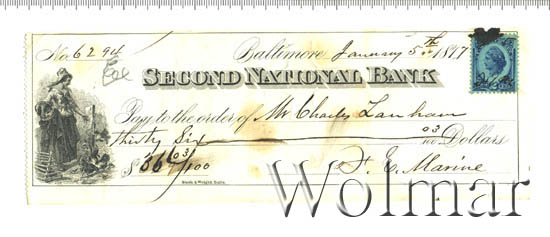 No. 6294 Baltimore, January 5th 1877
SECOND NATIONAL BANK
Pay to the order of Mr Charles Lanham
thirty Six 03/100 Dollars
$36 03/100 F. E. Marine
Wolmar